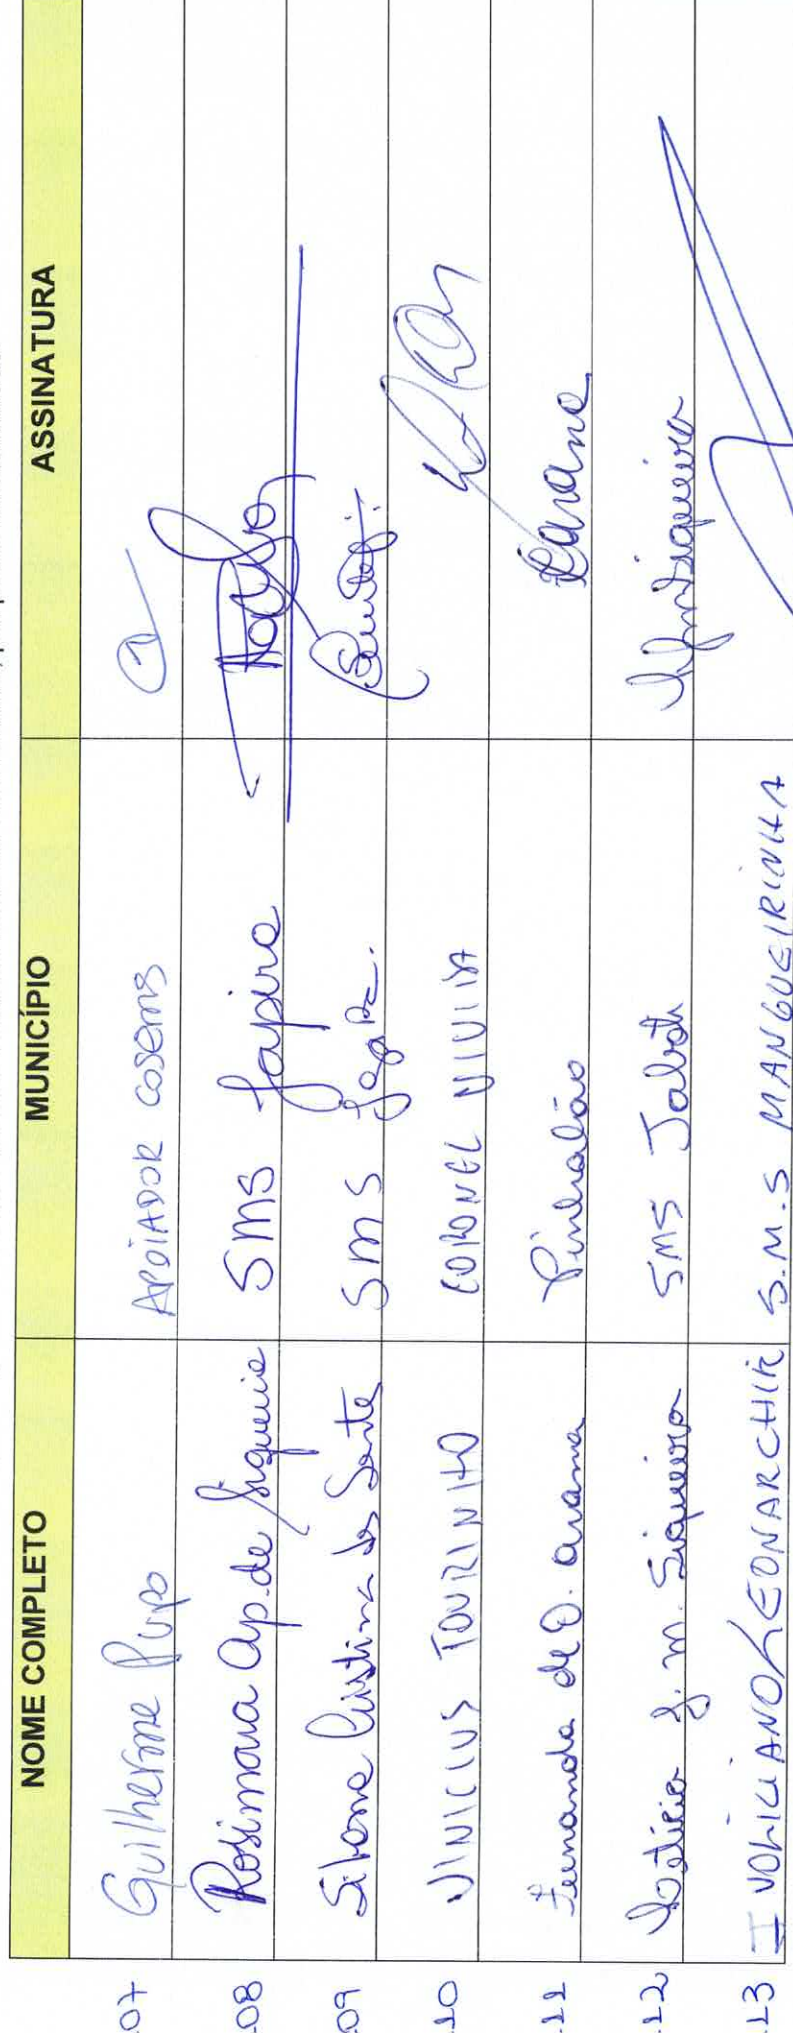 NOME COMPLETO MUNICÍPIO ASSINATURA
07 Guilherme Pupo APOIADOR COSEMS
08 Rosimara Ap. de Siqueira SMS Japira
09 Silvana Cristina dos Santos SMS
10 VINICIUS TOURINHO CORONEL VIVIDA
11 Fernanda de O. Arana Pinhalão Farana
12 Leticia G. M. Siqueira SMS Jaboti Siqueira
13 LEONARCHIK S.M.S MANGUEIRINHA